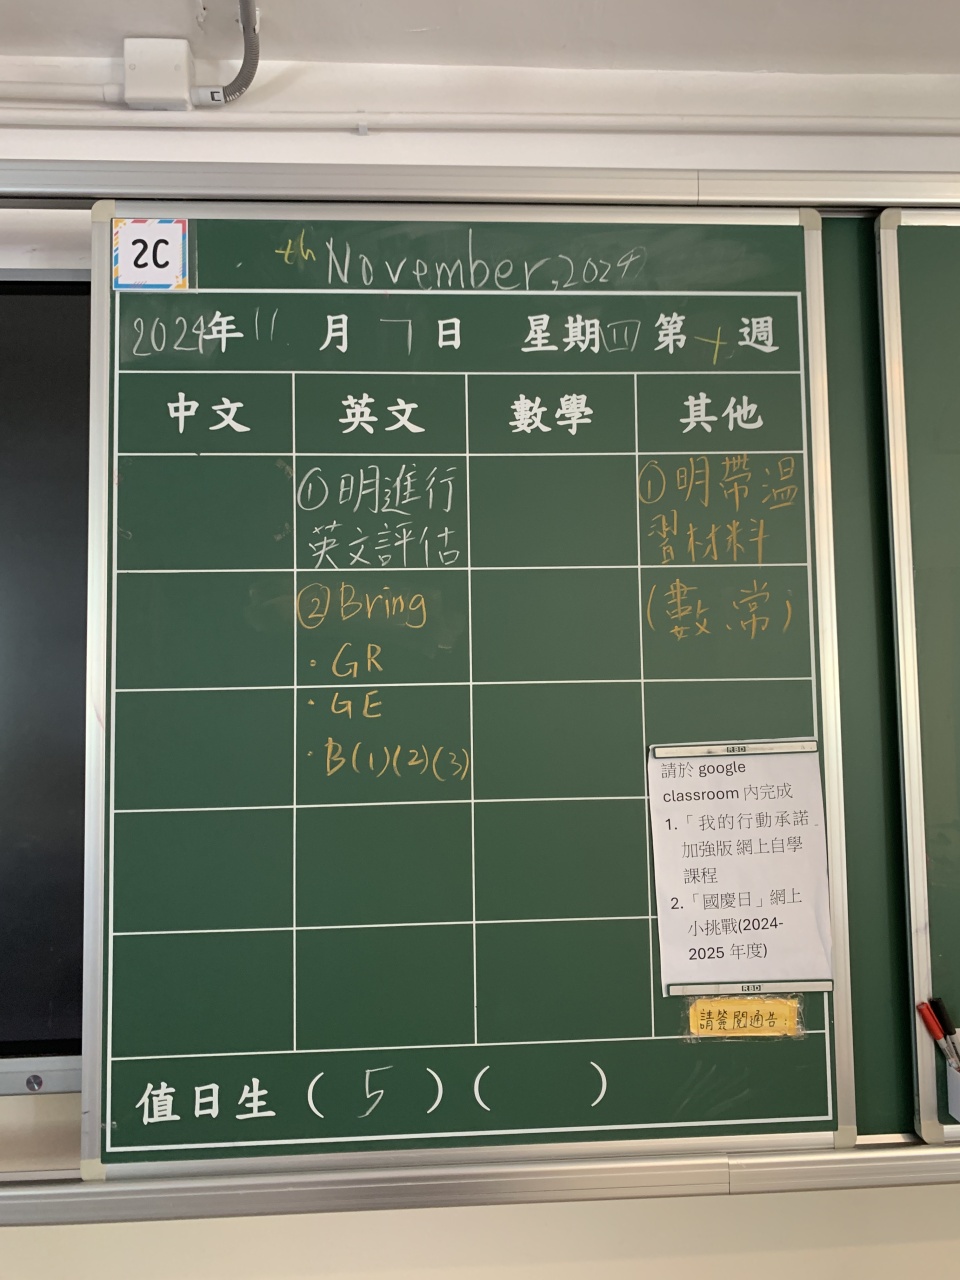 2C
th November, 2024
2024年11月7日 星期四 第十週
中文 英文 數學 其他
①明進行
英文評估
②Bring
· GR
· GE
· B(1)(2)(3)
①明帶溫
習材料
(數、常)
請於 google
classroom 內完成
1.「我的行動承諾
加強版 網上自學
課程
2.「國慶日」網上
小挑戰(2024-
2025 年度)
請簽閱通告
值日生( 5 )( )